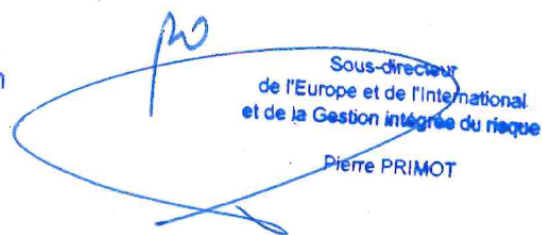 Sous-directeur
de l'Europe et de l'International
et de la Gestion intégrée du risque
Pierre PRIMOT